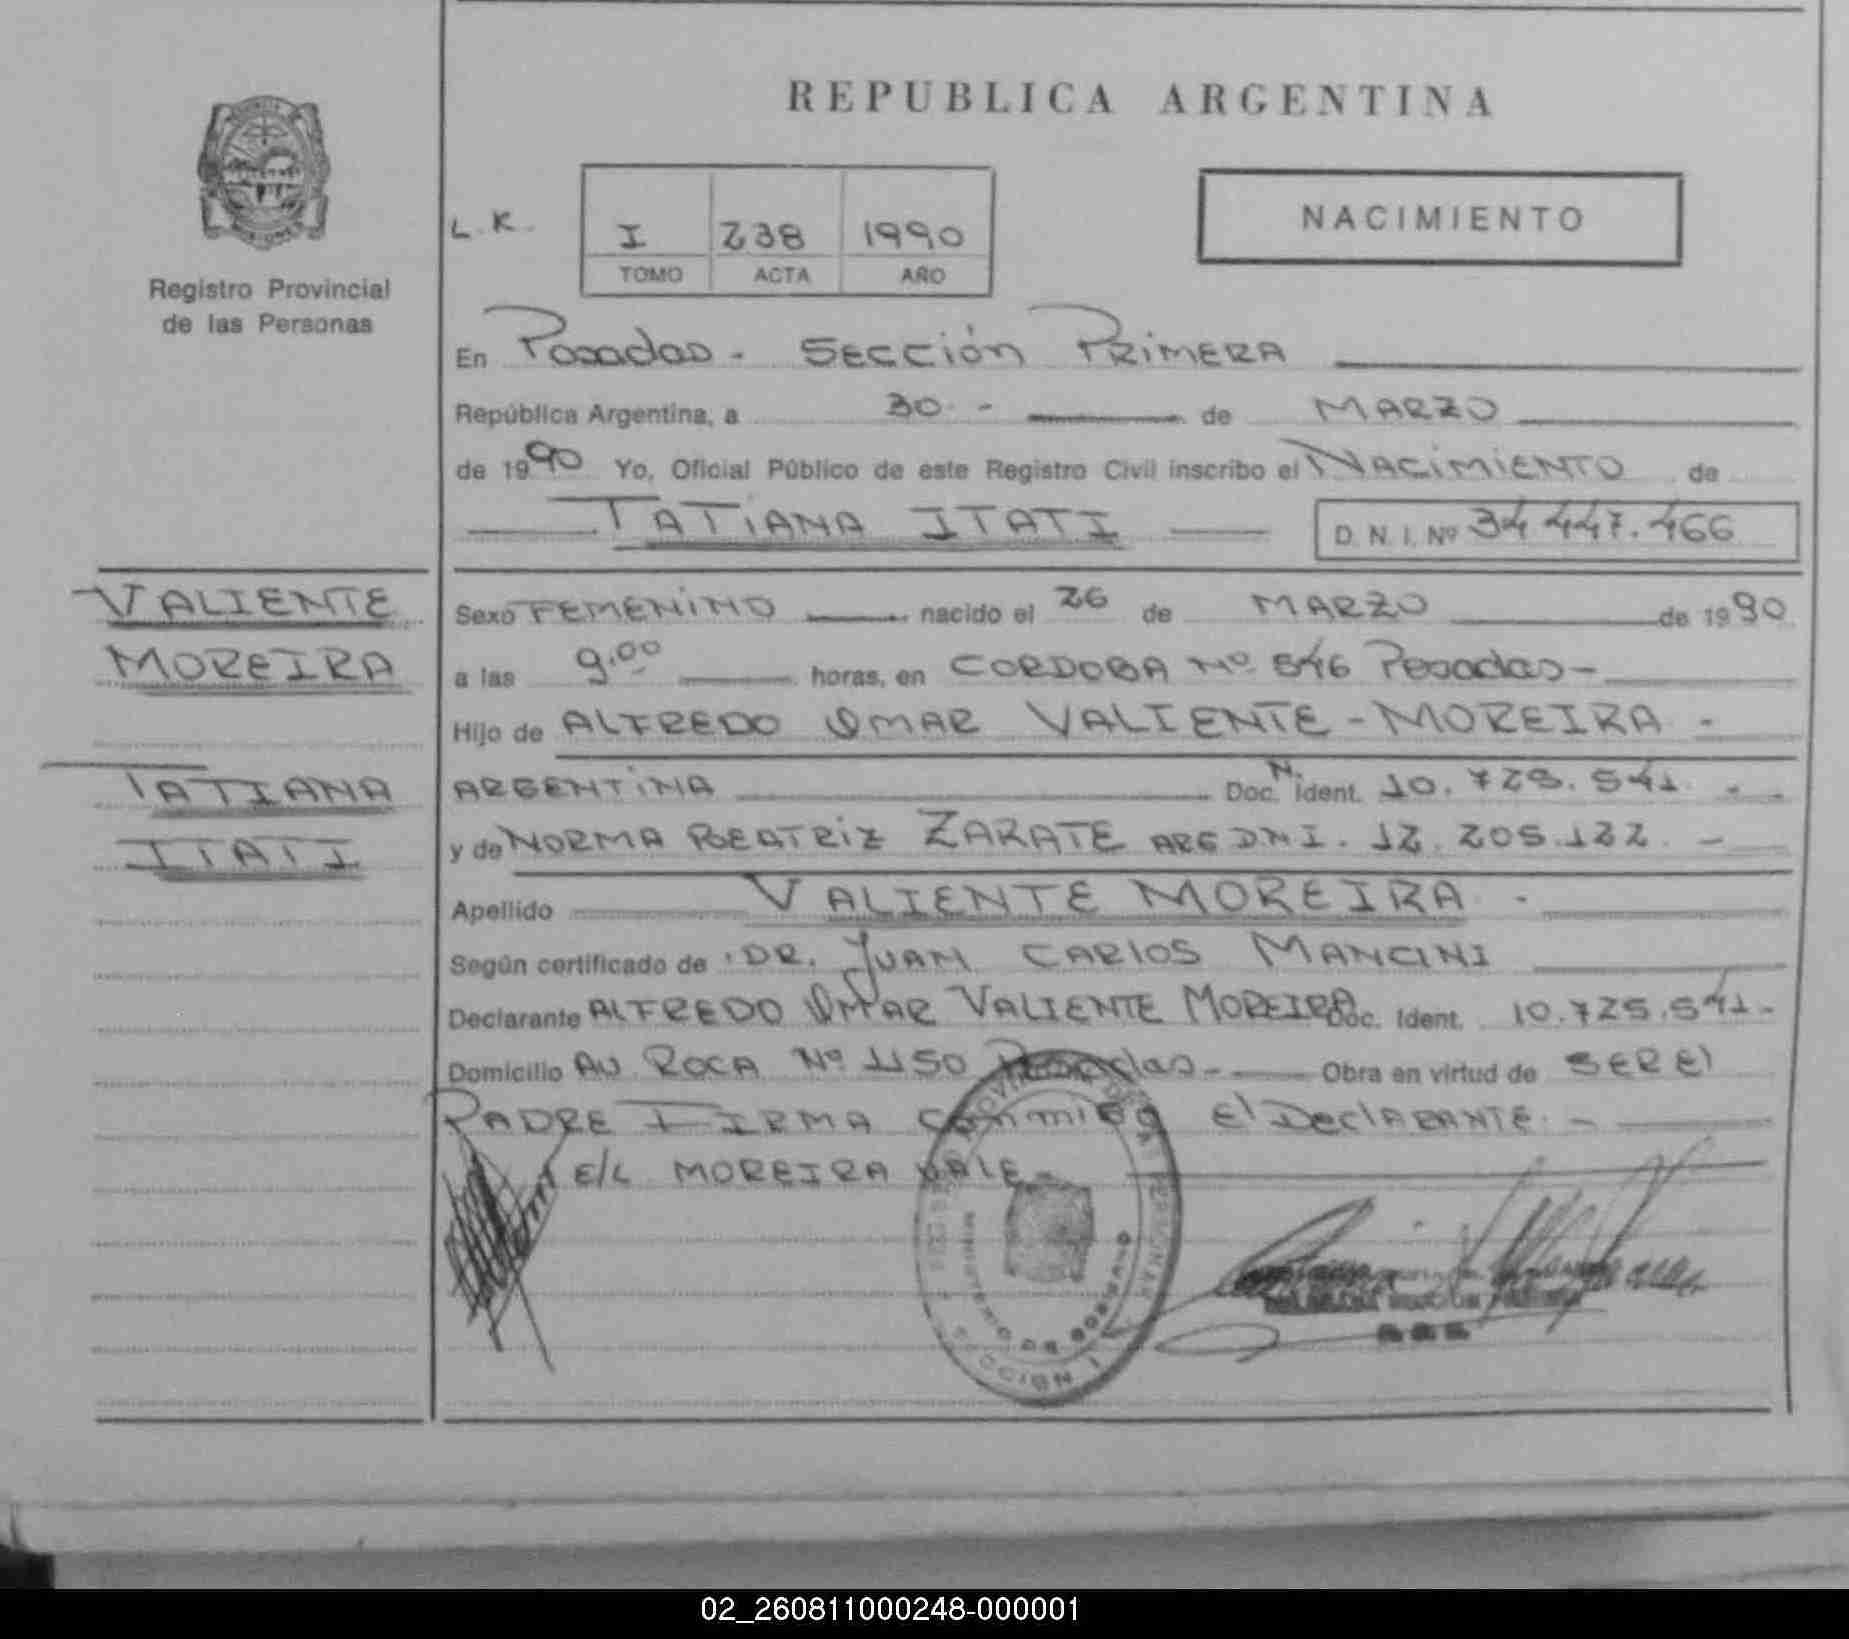 REPUBLICA ARGENTINA
L.K.
I 238 1990
TOMO ACTA AÑO
NACIMIENTO
Registro Provincial
de las Personas
En Posadas - SECCIÓN PRIMERA
República Argentina, a 30 - de MARZO
de 1990 Yo, Oficial Público de este Registro Civil inscribo el NACIMIENTO de
TATIANA ITATI D.N.I. Nº 34.447.466
VALIENTE
MOREIRA
TATIANA
ITATI
Sexo FEMENINO nacido el 26 de MARZO de 1990
a las 9.00 horas, en CORDOBA Nº 546 Posadas -
Hijo de ALFREDO OMAR VALIENTE - MOREIRA -
ARGENTINA Doc. N. Ident. 10.725.541 -
y de NORMA BEATRIZ ZARATE ARG D.N.I. 12.205.122. -
Apellido VALIENTE MOREIRA -
Según certificado de DR. JUAN CARLOS MANCINI
Declarante ALFREDO OMAR VALIENTE MOREIRA Doc. Ident. 10.725.541 -
Domicilio AV ROCA Nº 1150 Posadas - Obra en virtud de SER El
PADRE FIRMA conmigo El DEClARANTE. -
E/L MOREIRA VALE -
SECCION 1